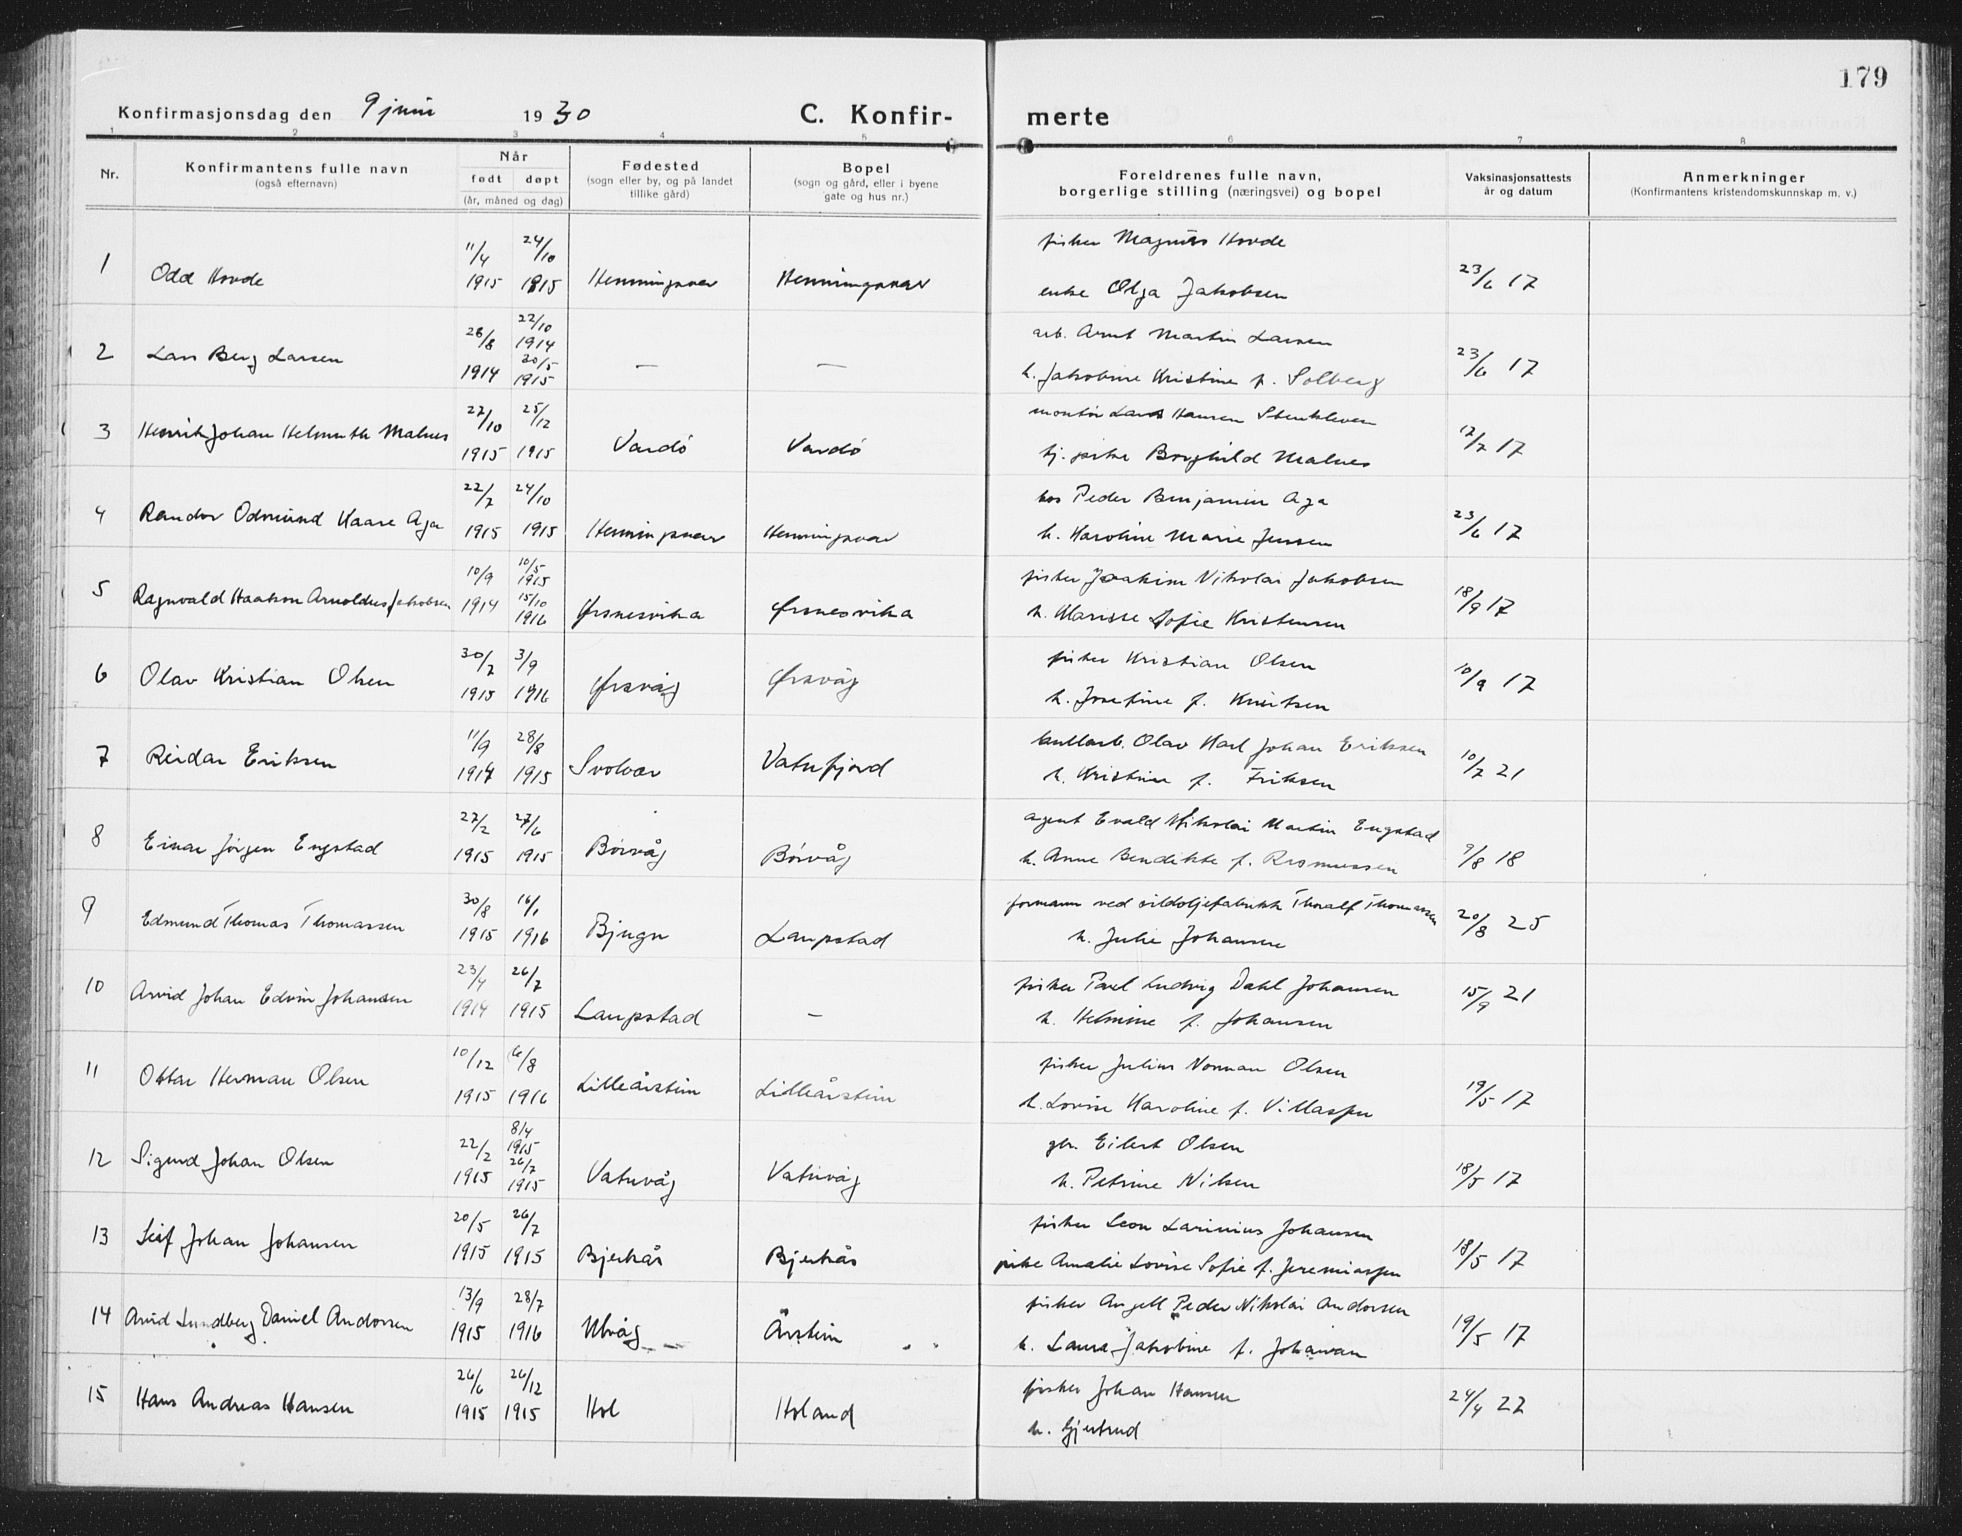 179
Konfirmasjonsdag den 9 juni 1930 C. Konfir- merte
1 2 3 4 5 6 7 8
Nr. Konfirmantens fulle navn (også efternavn) Når født døpt (år, måned og dag) Fødested (sogn eller by, og på landet tillike gård) Bopel (sogn og gård, eller i byene gate og hus nr.) Foreldrenes fulle navn, borgerlige stilling (næringsvei) og bopel Vaksinasjonsattests år og datum Anmerkninger (Konfirmantens kristendomskunnskap m. v.)
11/4 24/10 fisker Magnus Hovde
1 Odd Hovde 1915 1915 Henningsvær Henningsvær enke Olga Jakobsen 23/6 17
26/8 22/10 1914 arb. Arnt Martin Larsen
2 Lars Berg Larsen 1914 30/5 1915 — — h. Jakobine Kristine f. Solberg 23/6 17
27/10 25/12 montør Lars Hansen Stenkleven
3 Henrik Johan Helmuth Malnes 1915 1915 Vardö Vardö tj. pike Borghild Malnes 12/7 17
22/7 24/10 Peder Benjamin Aga
4 Randor Odmund Kaare Aga 1915 1915 Henningsvær Henningsvær h. Karoline Marie Jenssen 23/6 17
10/9 10/5 1915 fisker Joakim Nikolai Jakobsen
5 Ragnvald Haakon Arnoldus Jakobsen 1914 15/10 1916 Ørsnesvika Ørsnesvika h. Marisse Sofie Kristensen 18/9 17
30/7 3/9 fisker Kristian Olsen
6 Olav Kristian Olsen 1915 1916 Ørsvåg Ørsvåg h. Josefine f. Knutsen 10/9 17
11/9 28/8 kullarb. Olav Karl Johan Eriksen
7 Reidar Eriksen 1914 1915 Svolvær Vatnfjord h. Kristine f. Eriksen 10/7 21
27/2 27/6 agent Evald Nikolai Martin Engstad
8 Einar Jörgen Engstad 1915 1915 Börvåg Börvåg h. Anne Bendikte f. Rasmussen 9/8 18
30/8 16/1 formann ved sildoljefabrikk Thoralf Thomassen
9 Edmund Thomas Thomassen 1915 1916 Bjugn Laupstad h. Julie Johansen 20/8 25
23/4 26/7 fisker Parel Ludvig Dahl Johansen
10 Arvid Johan Edvin Johansen 1914 1915 Laupstad — h. Helmine f. Johansen 15/9 21
10/12 6/8 fisker Julius Norman Olsen
11 Ottar Herman Olsen 1915 1916 Lilleårstein Lilleårstein h. Lovise Karoline f. Villassen 19/5 17
22/2 8/4 1915 gbr. Eilert Olsen
12 Sigurd Johan Olsen 1915 26/7 1915 Vatnvåg Vatnvåg h. Petrine Nilsen 18/5 17
20/5 26/7 fisker Leon Larinius Johansen
13 Leif Johan Johansen 1915 1915 Bjerkås Bjerkås pike Amalie Lovise Sofie f. Jeremiassen 18/5 17
13/9 28/7 fisker Angell Peder Nikolai Andorsen
14 Arvid Lundberg Daniel Andorsen 1915 1916 Ulvåg Årstein h. Laura Jakobine f. Johansan 19/5 17
26/6 26/12 fisker Johan Hansen
15 Hans Andreas Hansen 1915 1915 Hol Holand h. Gjertrud 24/4 22